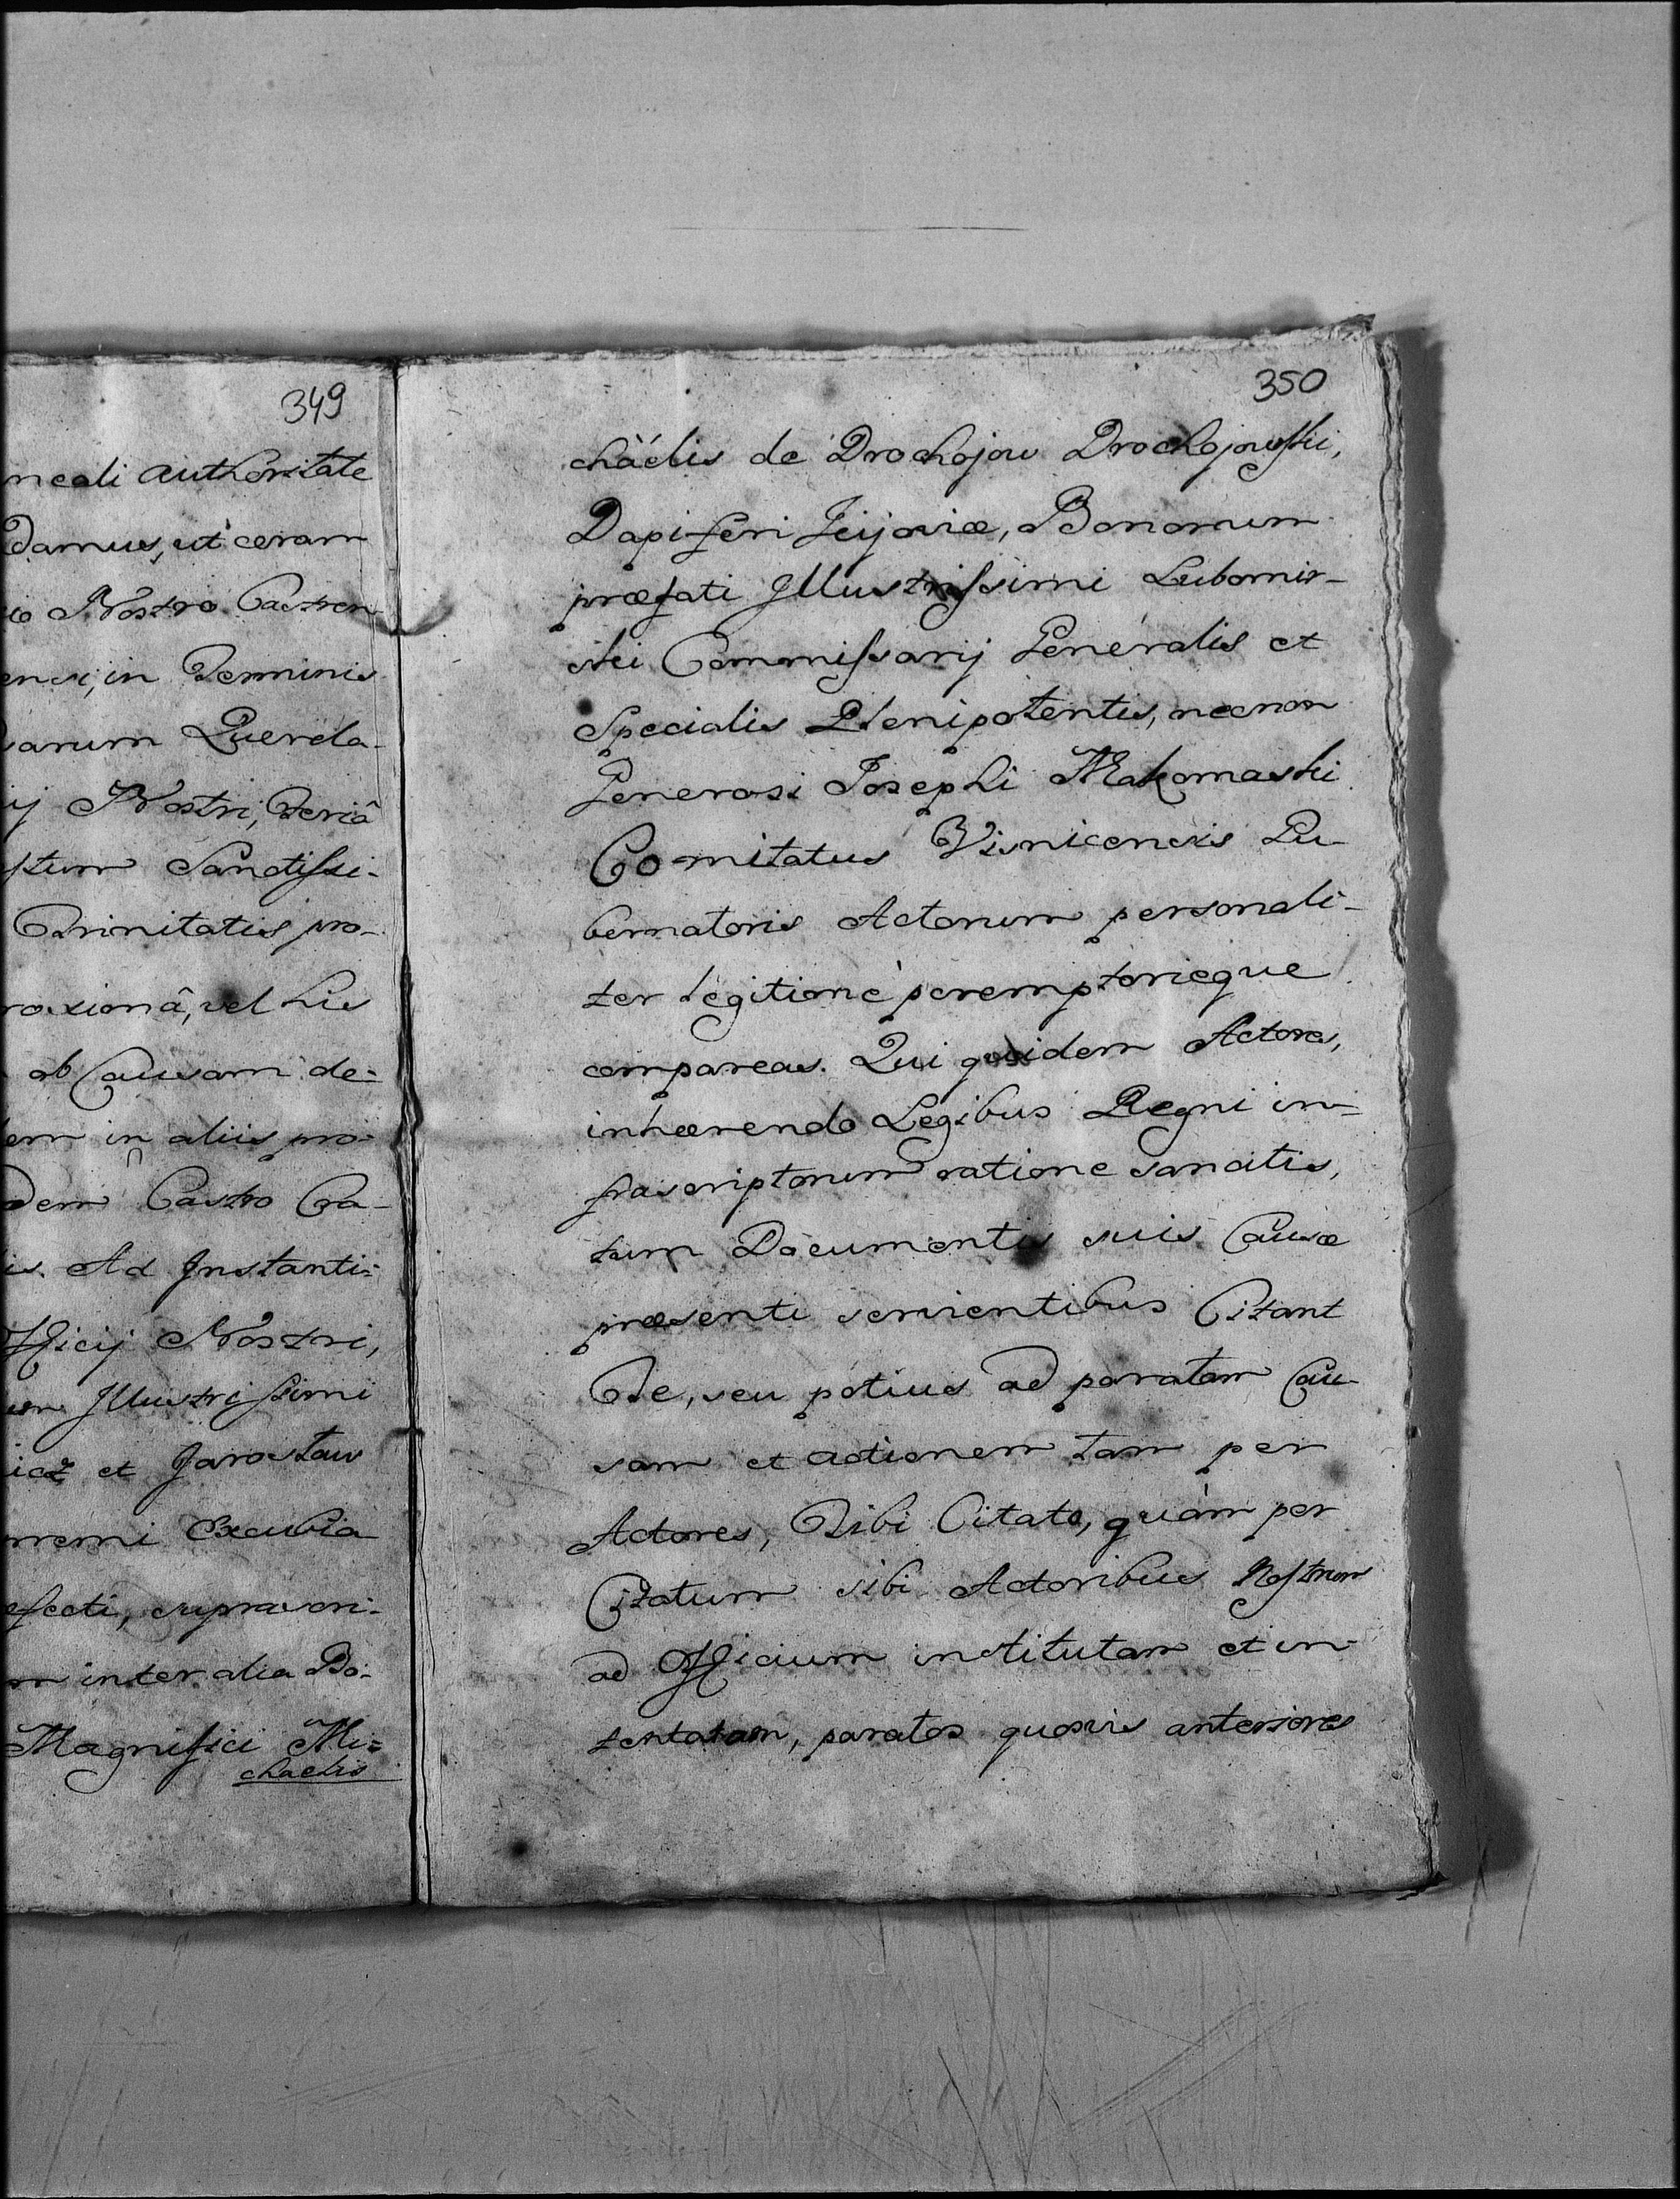 349
neali authoritate
damus, ut coram
io Nostro Castren
ensi, in Terminis
arum Querela-
ij Nostri, Feriâ
stum Sanctissi-
Trinitatis pro-
roximâ, vel his
ob Causam de-
em in aliis pro-
dem Castro Cra-
is. Ad Instanti-
fficij Nostri,
Illustrissimi
icz et Jarosław
remi Excubia
efecti, suprascri-
m inter alia Bo-
Magnifici Mi-
chaelis
350
chäelis de Drochojow Drochojowski,
Dapiferi Kijoviæ, Bonorum
præfati Illustrissimi Lubomir-
ski Commissarij Generalis et
Specialis Plenipotentis, necnon
Generosi Josephi Makomaski
Comitatus Visnicensis Gu-
bernatoris Actorum personali-
ter legitimè peremptorieque
compareas. Qui quidem Actores,
inhærendo Legibus Regni in-
frascriptorum ratione sancitis,
tum Documentis suis Causæ
præsenti servientibus Citant
Te, seu potius ad paratam Cau-
sam et actionem tam per
Actores, Tibi Citato, quàm per
Citatum sibi Actoribus Nostrum
ad Officium institutam et in-
tentatam, paratos quosvis anteriores